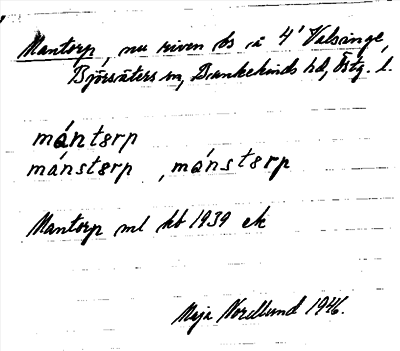 Mantorp, nu riven bs å 4' Valsänge,
Björsäters sn, Bankekinds hd, Östg. l.
mántorp
mánstorp , mánstorp
Mantorp ml kb 1939 ek
Maja Nordlund 1946.